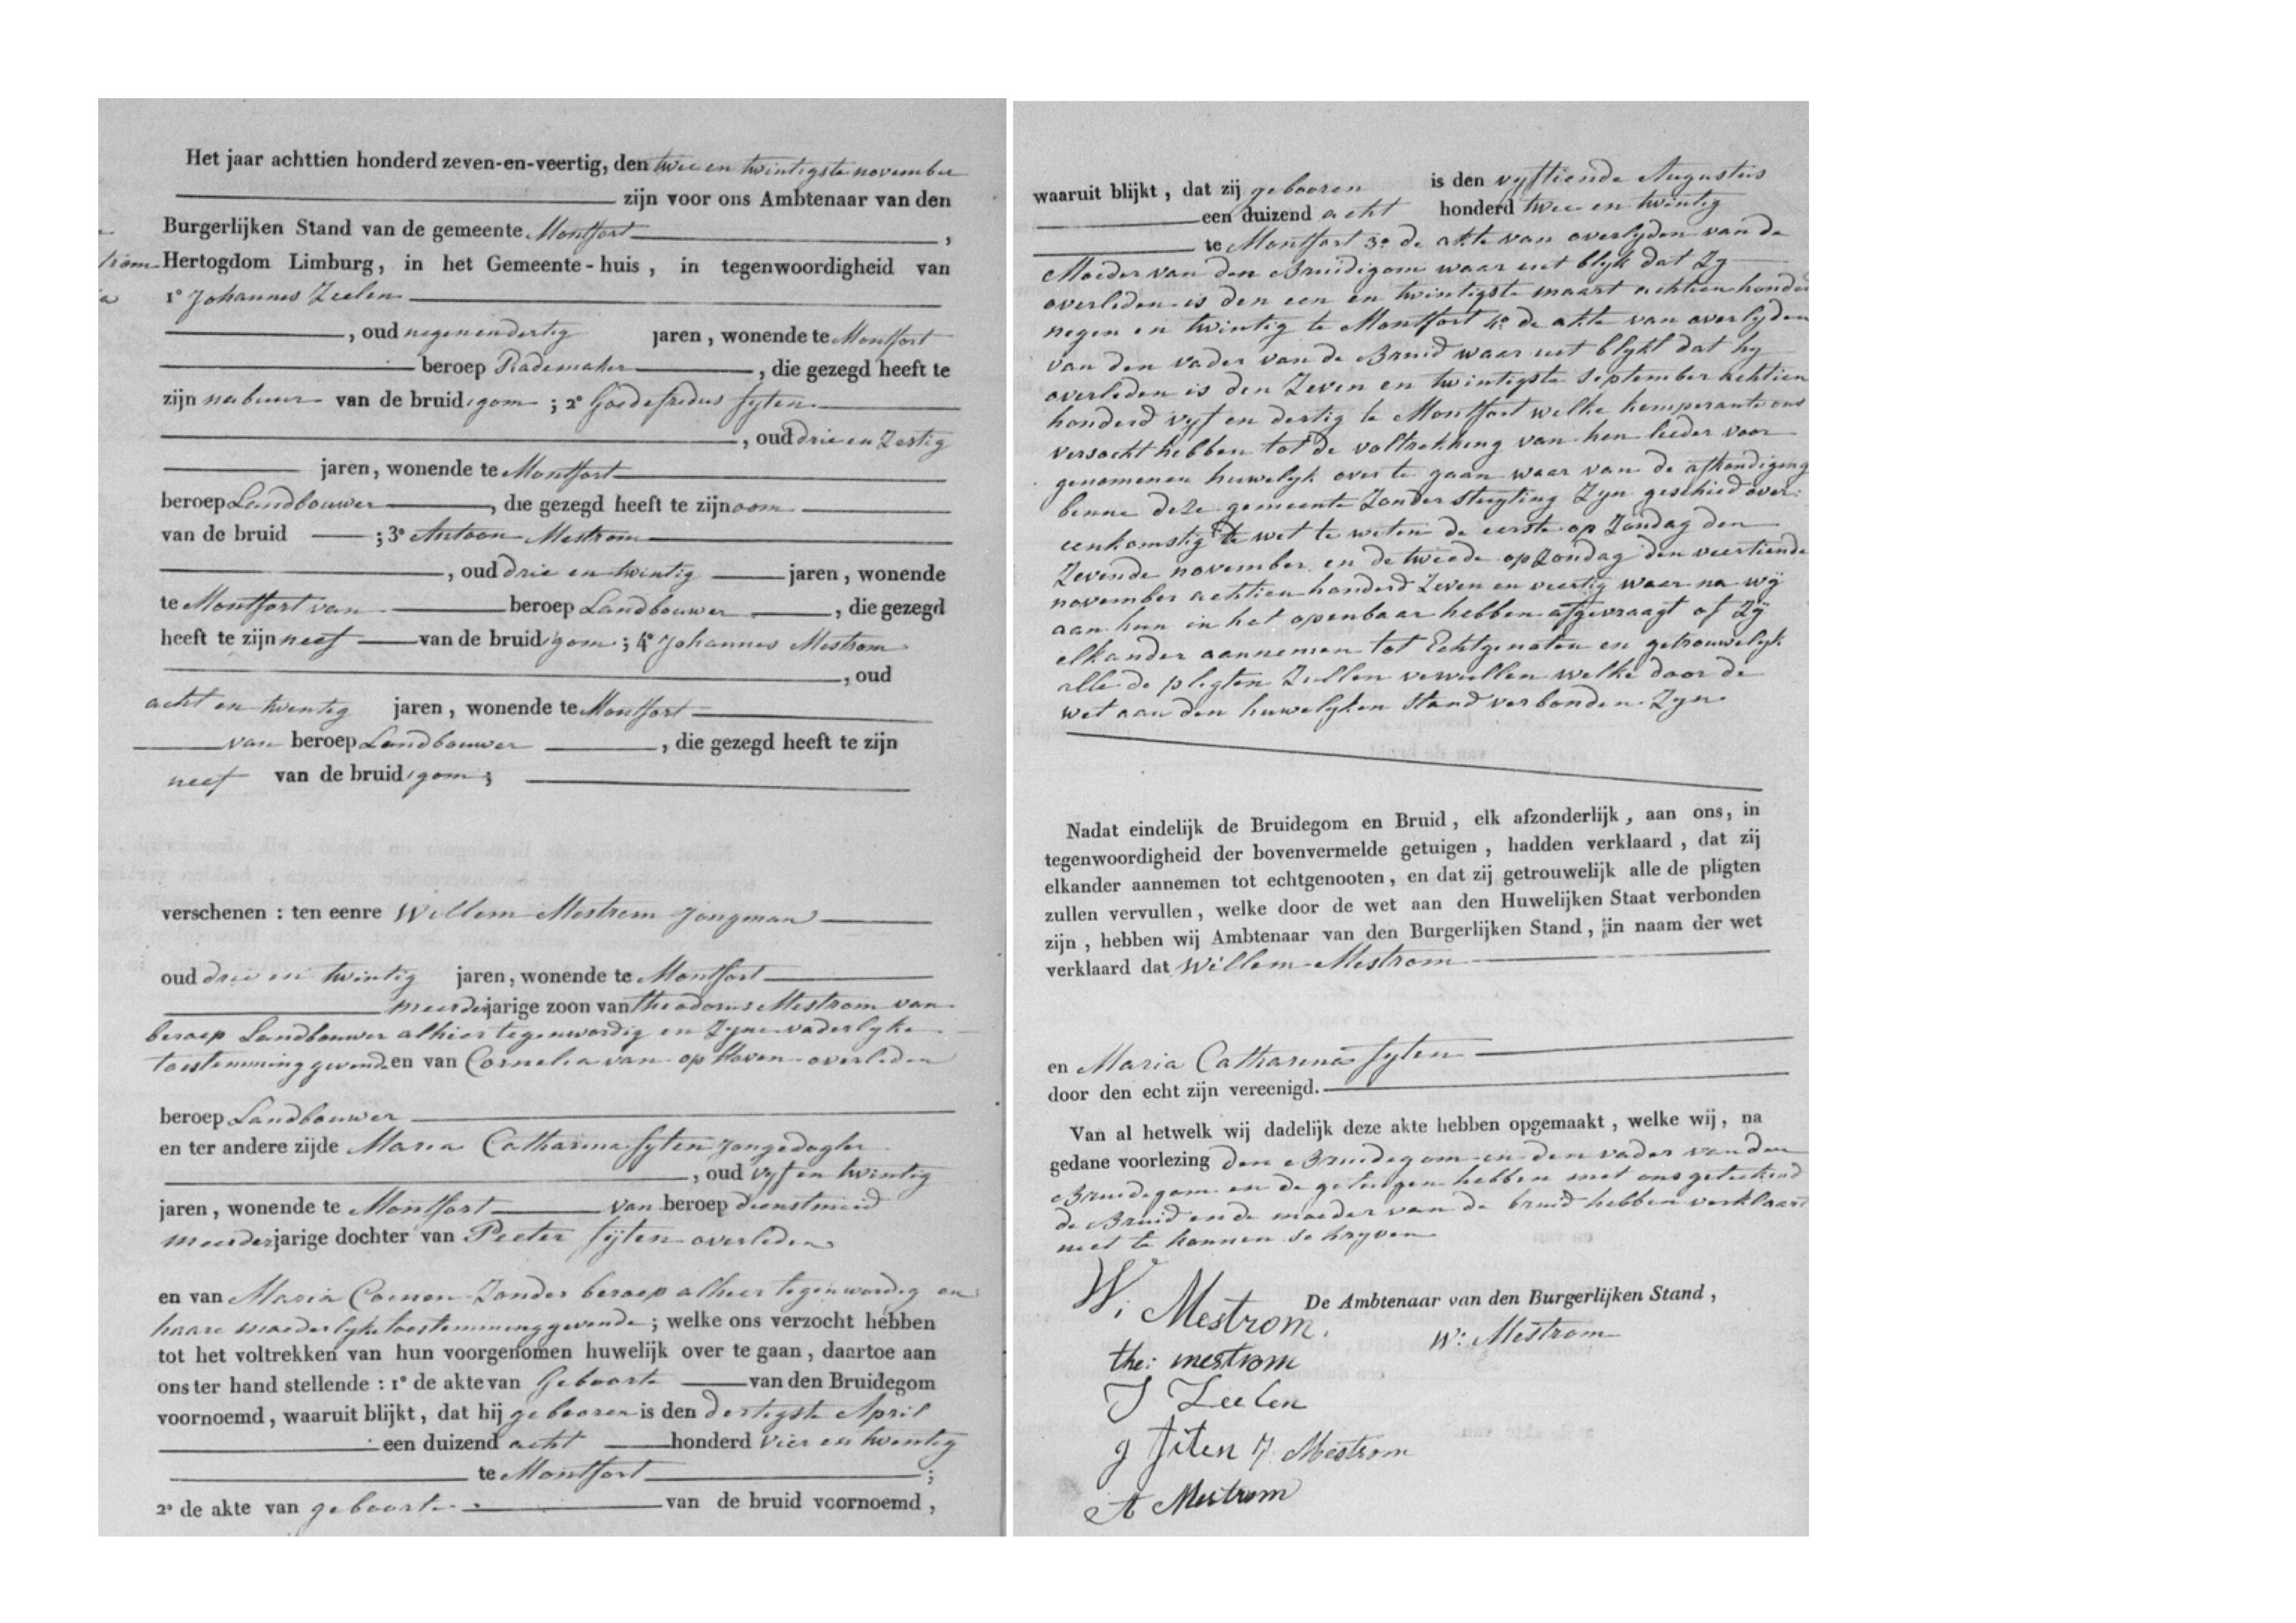 Het jaar achttien honderd zeven-en-veertig, den twee en twintigste november
zijn voor ons Ambtenaar van den
Burgerlijken Stand van de gemeente Montfort,
Hertogdom Limburg, in het Gemeente-huis, in tegenwoordigheid van
1° Johannes Zeelen
, oud negenendertig jaren, wonende te Montfort
beroep Rademaker, die gezegd heeft te
zijn nabuur van de bruidigom; 2° Godefredus Syten
, oud drie en Zestig
jaren, wonende te Montfort
beroep Landbouwer, die gezegd heeft te zijn oom
van de bruid; 3° Antoon Mestrom
, oud drie en twintig jaren, wonende
te Montfort van beroep Landbouwer, die gezegd
heeft te zijn neef van de bruidigom; 4° Johannes Mestrom
, oud
acht en twentig jaren, wonende te Montfort
van beroep Landbouwer, die gezegd heeft te zijn
neef van de bruidigom;
verschenen: ten eenre Willem Mestrom jongman
oud drie en twintig jaren, wonende te Montfort
meerderjarige zoon van theodorus Mestrom van
beroep Landbouwer alhier tegenwordig en Zyne vaderlyke
toestemming gevende en van Cornelia van op Hoven overleden
beroep Landbouwer
en ter andere zijde Maria Catharina Syten jongedogter
, oud vyf en twintig
jaren, wonende te Montfort van beroep dienstmeid
meerderjarige dochter van Peeter Syten overleden
en van Maria Coenen Zonder beroep alhier tegenwordig en
haare moederlyke toestemming gevende; welke ons verzocht hebben
tot het voltrekken van hun voorgenomen huwelijk over te gaan, daartoe aan
ons ter hand stellende: 1° de akte van Geboorte van den Bruidegom
voornoemd, waaruit blijkt, dat hij gebooren is den dertigste April
een duizend acht honderd vier en twentig
te Montfort;
2° de akte van geboorte van de bruid voornoemd,
waaruit blijkt, dat zij gebooren is den vyftiende Augustus
een duizend acht honderd twee en twintig
te Montfort 3° de akte van overlyden van de
Moeder van den Bruidigom waar uit blyk dat Zy
overleden is den een en twintigste maart achtien honderd
negen en twintig te Montfort 4° de akte van overlyden
van den vader van de Bruid waar uit blykt dat hy
overleden is den Zeven en twintigste September achtien
honderd vyf en dertig te Montfort welke komparante ons
versocht hebben tot de voltrekking van hen lieder voor
genomenen huwelyk over te gaan waar van de afkondiging
benne deze gemeente Zonder stuyting Zyn geschied over
eenkomstig te wet te weten de eerste op Zondag den
Zevende november en de tweede op Zondag den veertiende
november achtien honderd Zeven en veertig waar na wÿ
aan hun in het openbaar hebben afgevraagt of Zÿ
elkander aannemen tot Echtgenoten en getrouwelyk
alle de pligten Zullen vervullen welke door de
wet aan den huwelyken Stand verbonden Zyn
Nadat eindelijk de Bruidegom en Bruid, elk afzonderlijk, aan ons, in
tegenwoordigheid der bovenvermelde getuigen, hadden verklaard, dat zij
elkander aannemen tot echtgenooten, en dat zij getrouwelijk alle de pligten
zullen vervullen, welke door de wet aan den Huwelijken Staat verbonden
zijn, hebben wij Ambtenaar van den Burgerlijken Stand, in naam der wet
verklaard dat Willem Mestrom
en Maria Catharina Syten
door den echt zijn vereenigd.
Van al hetwelk wij dadelijk deze akte hebben opgemaakt, welke wij, na
gedane voorlezing den Bruidegom en den vader van den
Bruidegom en de getuigen hebben met ons geteekend
de Bruid en de moeder van de bruid hebben verklaard
niet te konnen schryven
W. Mestrom.
De Ambtenaar van den Burgerlijken Stand,
W: Mestrom
the: mestrom
J Zeelen
g Siten J. Mestrom
A Mestrom